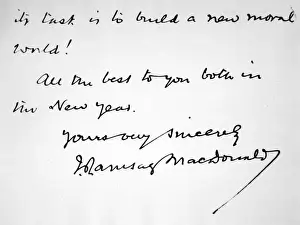 its task is to build a new moral
world!
All the best to you both in
the New Year.
Yours very sincerely
J. Ramsay MacDonald